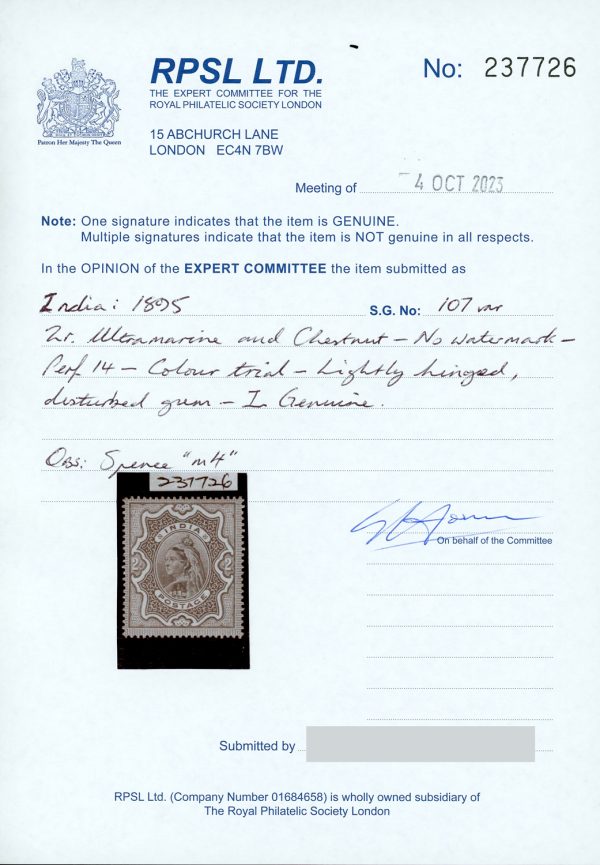 RPSL LTD.
THE EXPERT COMMITTEE FOR THE
ROYAL PHILATELIC SOCIETY LONDON
15 ABCHURCH LANE
LONDON EC4N 7BW
Patron Her Majesty The Queen
No: 237726
Meeting of - 4 OCT 2023
Note: One signature indicates that the item is GENUINE.
Multiple signatures indicate that the item is NOT genuine in all respects.
In the OPINION of the EXPERT COMMITTEE the item submitted as
India: 1895 S.G. No: 107 var
2r. Ultramarine and Chestnut - No watermark -
Perf 14 - Colour trial - Lightly hinged,
disturbed gum - Is Genuine.
Obs: Spence "m4"
237726
INDIA
2 2
POSTAGE
On behalf of the Committee
Submitted by
RPSL Ltd. (Company Number 01684658) is wholly owned subsidiary of
The Royal Philatelic Society London